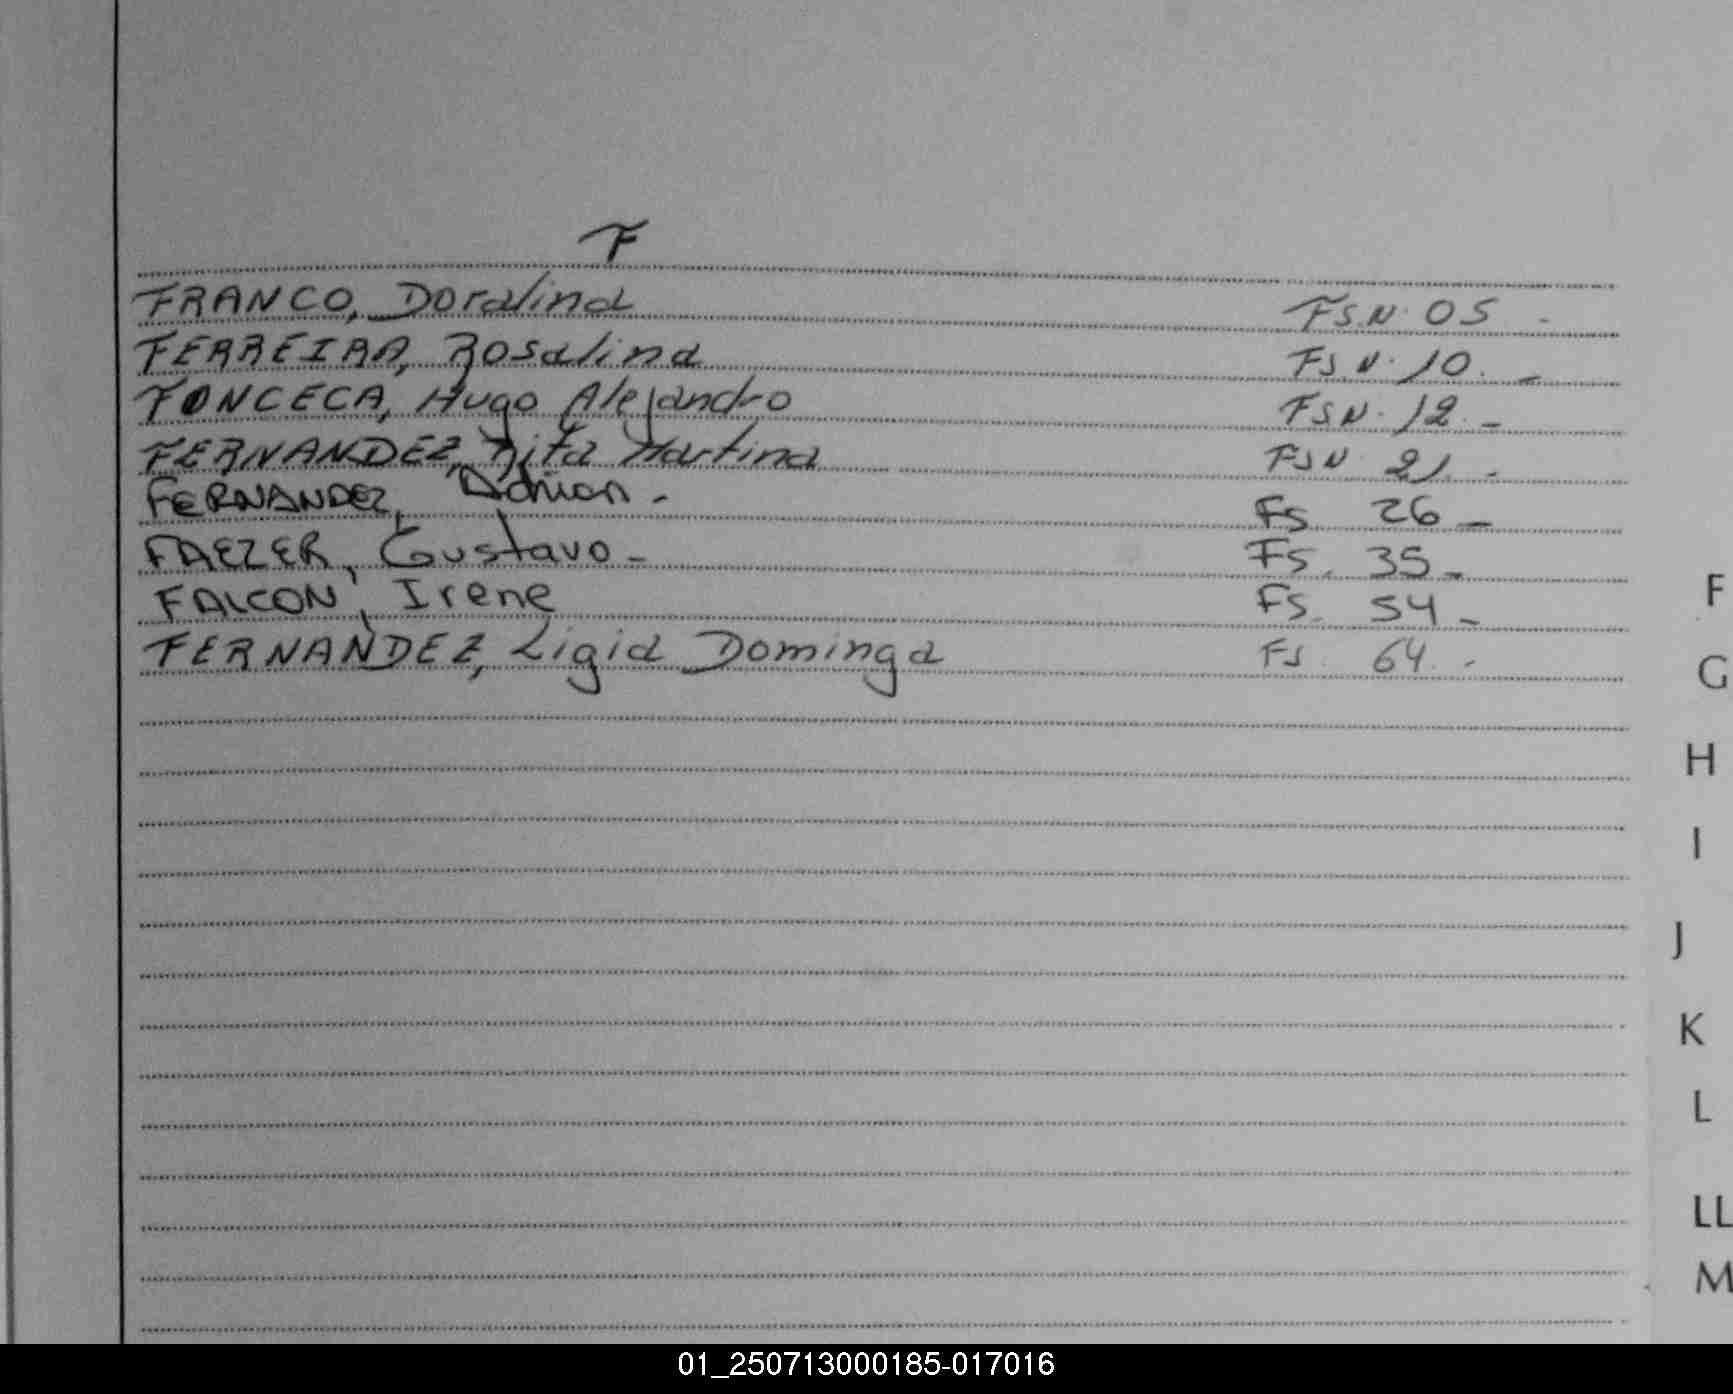 F
FRANCO, Doralina FS.N. 05 -
FERREIRA, Rosalina FS N. 10. -
FONCECA, Hugo Alejandro FSN. 12. -
FERNANDEZ, Rita Martina FSN. 21. -
FERNANDEZ, Adrian. - Fs 26 -
FAEZER, Gustavo. - FS. 35 -
FALCON, Irene FS. 54 -
FERNANDEZ, Ligia Dominga FS. 64. -
F
G
H
I
J
K
L
LL
M
01_250713000185-017016